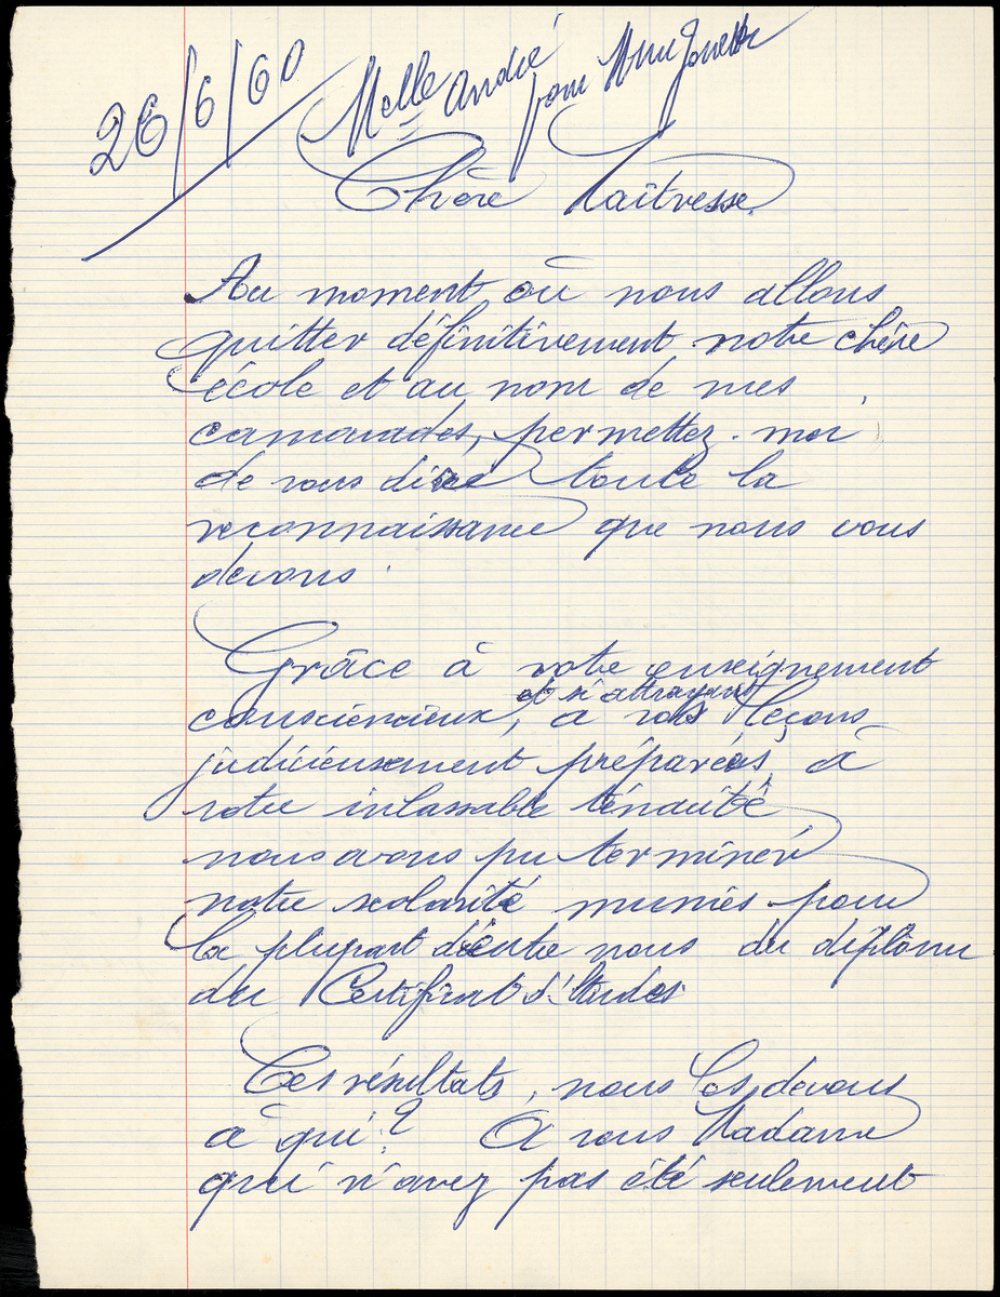 26/6/60
Melle André pour Mme Jouette
Chère Maîtresse
Au moment où nous allons
quitter définitivement notre chère
école et au nom de mes
camarades, permettez-moi
de vous dire toute la
reconnaissance que nous vous
devons.
Grâce à votre enseignement
et si attrayant
consciencieux, à vos leçons
judicieusement préparées, à
votre inlassable ténacité
nous avons pu terminer
notre scolarité munies pour
la plupart d'entre nous du diplôme
du Certificat d'Etudes
Ces résultats, nous les devons
à qui ? A vous Madame
qui n'avez pas été seulement